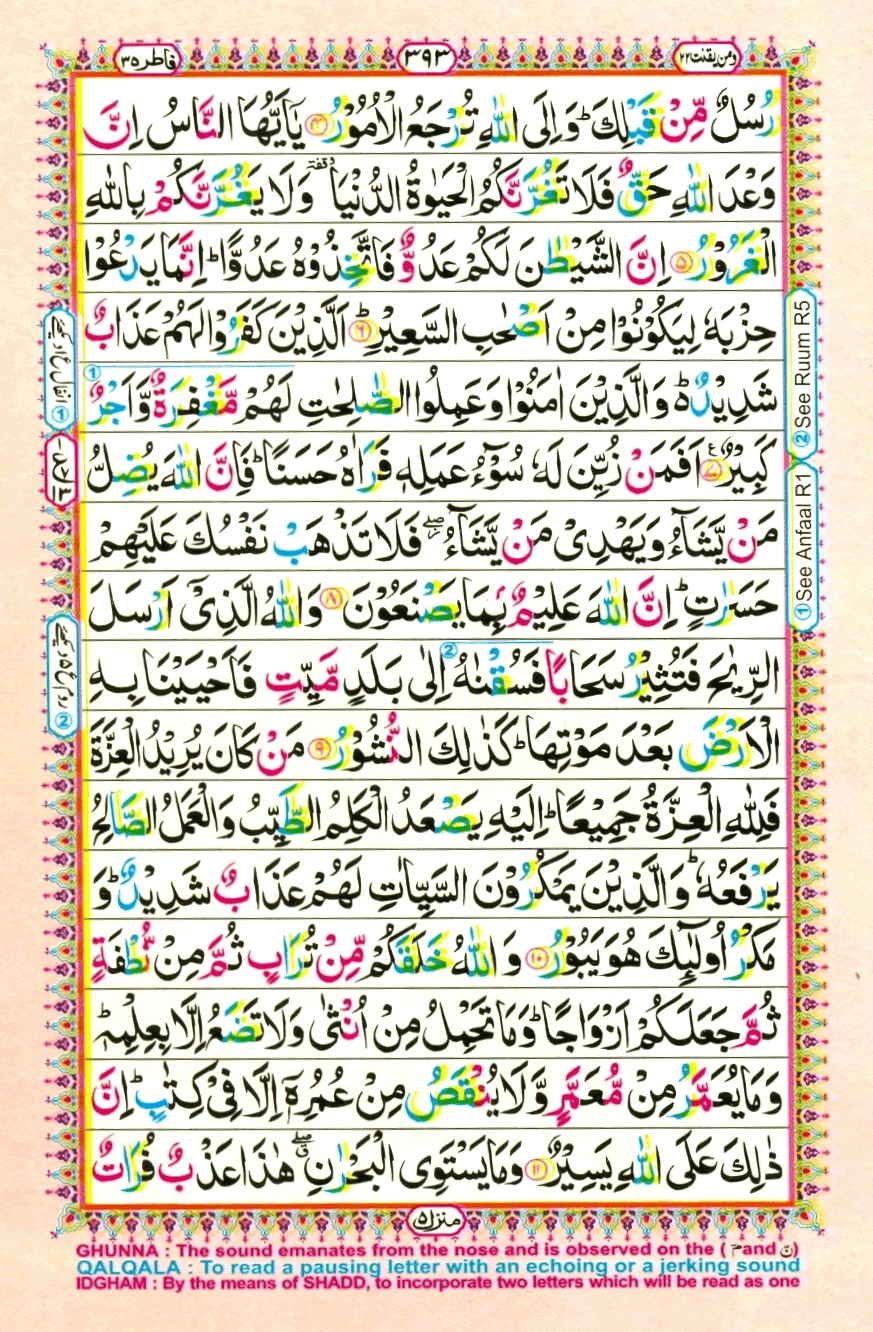 فاطر ٣٥
٣٩٣
ومن يقنت ٢٢
رُسُلٌ مِّنْ قَبْلِكَ ؕ وَاِلَى اللّٰهِ تُرْجَعُ الْاُمُوْرُ ﴿۴﴾ يٰۤاَيُّهَا النَّاسُ اِنَّ
وَعْدَ اللّٰهِ حَقٌّ فَلَا تَغُرَّنَّكُمُ الْحَيٰوةُ الدُّنْيَا ٝ وقفة وَلَا يَغُرَّنَّكُمْ بِاللّٰهِ
الْغَرُوْرُ ﴿۵﴾ اِنَّ الشَّيْطٰنَ لَكُمْ عَدُوٌّ فَاتَّخِذُوْهُ عَدُوًّا ؕ اِنَّمَا يَدْعُوْا
حِزْبَهٗ لِيَكُوْنُوْا مِنْ اَصْحٰبِ السَّعِيْرِ ؕ ﴿۶﴾ اَلَّذِيْنَ كَفَرُوْا لَهُمْ عَذَابٌ
شَدِيْدٌ ۬ؕ وَالَّذِيْنَ اٰمَنُوْا وَعَمِلُوا الصّٰلِحٰتِ لَهُمْ مَّغْفِرَةٌ وَّاَجْرٌ ①
كَبِيْرٌ ﴿۷﴾ ع اَفَمَنْ زُيِّنَ لَهٗ سُوْٓءُ عَمَلِهٖ فَرَاٰهُ حَسَنًا ؕ فَاِنَّ اللّٰهَ يُضِلُّ
مَنْ يَّشَآءُ وَيَهْدِىْ مَنْ يَّشَآءُ ۖ فَلَا تَذْهَبْ نَفْسُكَ عَلَيْهِمْ
حَسَرٰتٍ ؕ اِنَّ اللّٰهَ عَلِيْمٌۢ بِمَا يَصْنَعُوْنَ ﴿۸﴾ وَاللّٰهُ الَّذِىْۤ اَرْسَلَ
الرِّيٰحَ فَتُثِيْرُ سَحَابًا فَسُقْنٰهُ ② اِلٰى بَلَدٍ مَّيِّتٍ فَاَحْيَيْنَا بِهِ
الْاَرْضَ بَعْدَ مَوْتِهَا ؕ كَذٰلِكَ النُّشُوْرُ ﴿۹﴾ مَنْ كَانَ يُرِيْدُ الْعِزَّةَ
فَلِلّٰهِ الْعِزَّةُ جَمِيْعًا ؕ اِلَيْهِ يَصْعَدُ الْكَلِمُ الطَّيِّبُ وَالْعَمَلُ الصَّالِحُ
يَرْفَعُهٗ ؕ وَالَّذِيْنَ يَمْكُرُوْنَ السَّيِّاٰتِ لَهُمْ عَذَابٌ شَدِيْدٌ ؕ وَ
مَكْرُ اُولٰٓئِكَ هُوَ يَبُوْرُ ﴿۱۰﴾ وَاللّٰهُ خَلَقَكُمْ مِّنْ تُرَابٍ ثُمَّ مِنْ نُّطْفَةٍ
ثُمَّ جَعَلَكُمْ اَزْوَاجًا ؕ وَمَا تَحْمِلُ مِنْ اُنْثٰى وَلَا تَضَعُ اِلَّا بِعِلْمِهٖ ؕ
وَمَا يُعَمَّرُ مِنْ مُّعَمَّرٍ وَّلَا يُنْقَصُ مِنْ عُمُرِهٖۤ اِلَّا فِىْ كِتٰبٍ ؕ اِنَّ
ذٰلِكَ عَلَى اللّٰهِ يَسِيْرٌ ﴿۱۱﴾ وَمَا يَسْتَوِى الْبَحْرٰنِ ۖ ق هٰذَا عَذْبٌ فُرَاتٌ
منزل ٥
② See Ruum R5
① See Anfaal R1
GHUNNA : The sound emanates from the nose and is observed on the ( مّ and نّ)
QALQALA : To read a pausing letter with an echoing or a jerking sound
IDGHAM : By the means of SHADD, to incorporate two letters which will be read as one